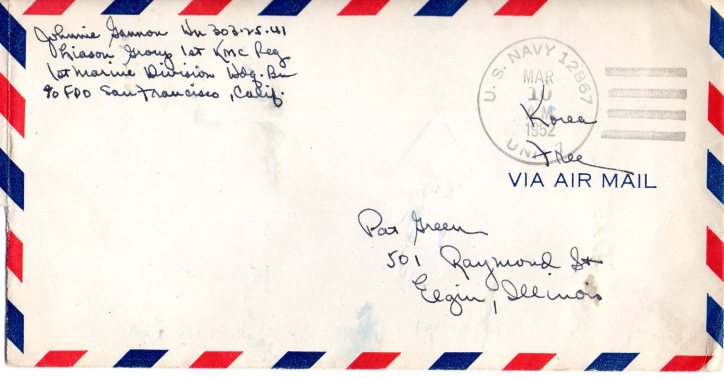 Johnnie Gannon Hn 303-25-41
Liason Group 1st KMC Reg
1st Marine Division Hdq. Bn
℅ FPO San Francisco, Calif.
U.S. NAVY 12867
MAR
10
A.M.
1952
UNIT 1
Korea
Free
VIA AIR MAIL
Pat Green
501 Raymond St
Elgin, Illinois